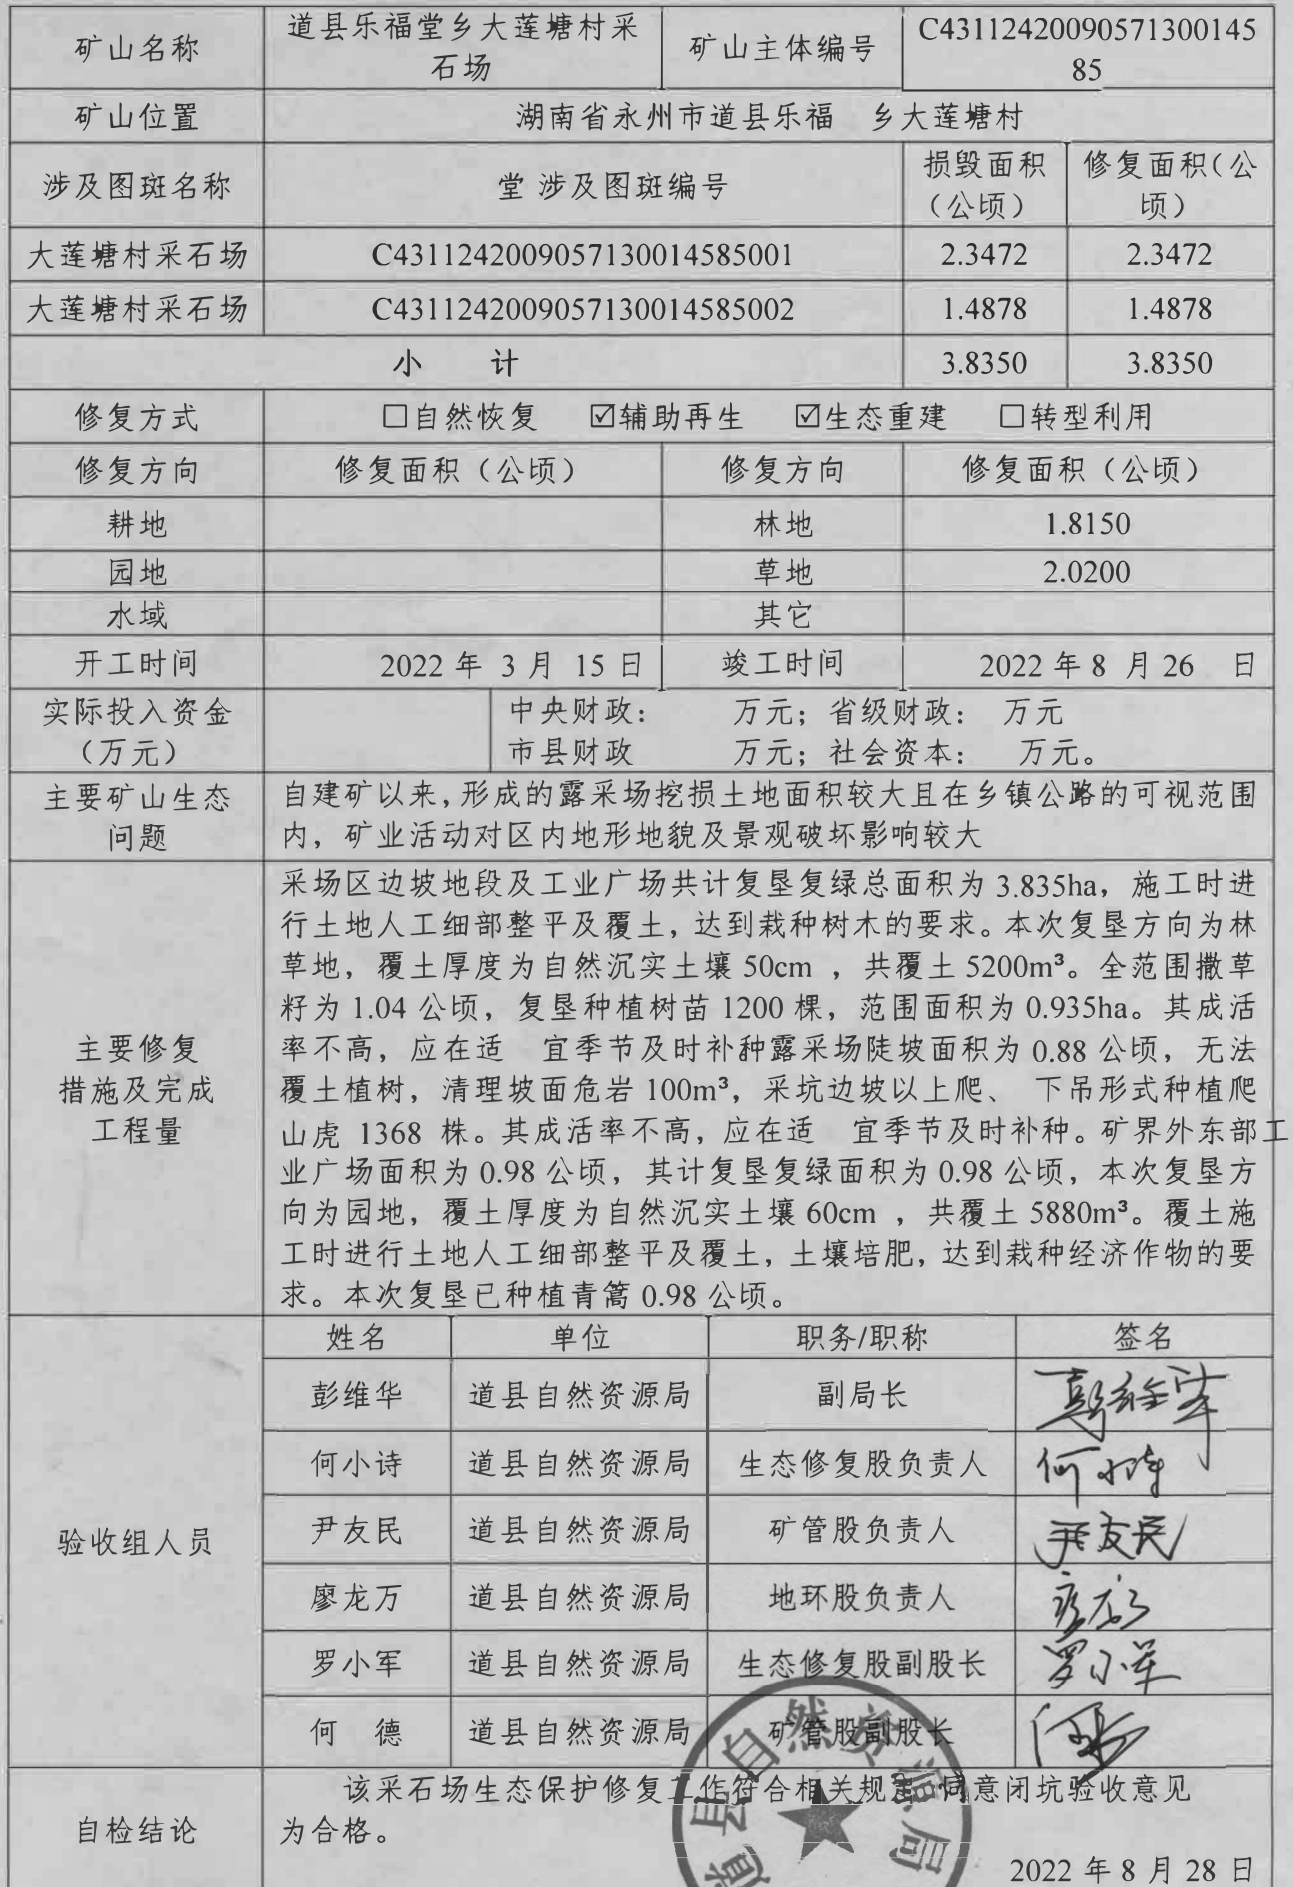 矿山名称 道县乐福堂乡大莲塘村采石场 矿山主体编号 C4311242009057130014585
矿山位置 湖南省永州市道县乐福 乡大莲塘村
涉及图斑名称 堂 涉及图斑编号 损毁面积（公顷） 修复面积（公顷）
大莲塘村采石场 C4311242009057130014585001 2.3472 2.3472
大莲塘村采石场 C4311242009057130014585002 1.4878 1.4878
小 计 3.8350 3.8350
修复方式 ☐自然恢复 ☑辅助再生 ☑生态重建 ☐转型利用
修复方向 修复面积（公顷） 修复方向 修复面积（公顷）
耕地 林地 1.8150
园地 草地 2.0200
水域 其它
开工时间 2022 年 3 月 15 日 竣工时间 2022 年 8 月 26 日
实际投入资金（万元） 中央财政： 万元；省级财政： 万元
市县财政 万元；社会资本： 万元。
主要矿山生态问题
自建矿以来，形成的露采场挖损土地面积较大且在乡镇公路的可视范围
内，矿业活动对区内地形地貌及景观破坏影响较大
主要修复
措施及完成
工程量
采场区边坡地段及工业广场共计复垦复绿总面积为 3.835ha，施工时进
行土地人工细部整平及覆土，达到栽种树木的要求。本次复垦方向为林
草地，覆土厚度为自然沉实土壤 50cm ，共覆土 5200m³。全范围撒草
籽为 1.04 公顷，复垦种植树苗 1200 棵，范围面积为 0.935ha。其成活
率不高，应在适 宜季节及时补种露采场陡坡面积为 0.88 公顷，无法
覆土植树，清理坡面危岩 100m³，采坑边坡以上爬、 下吊形式种植爬
山虎 1368 株。其成活率不高，应在适 宜季节及时补种。矿界外东部工
业广场面积为 0.98 公顷，其计复垦复绿面积为 0.98 公顷，本次复垦方
向为园地，覆土厚度为自然沉实土壤 60cm ，共覆土 5880m³。覆土施
工时进行土地人工细部整平及覆土，土壤培肥，达到栽种经济作物的要
求。本次复垦已种植青蒿 0.98 公顷。
验收组人员
姓名 单位 职务/职称 签名
彭维华 道县自然资源局 副局长 彭维华
何小诗 道县自然资源局 生态修复股负责人 何小诗
尹友民 道县自然资源局 矿管股负责人 尹友民
廖龙万 道县自然资源局 地环股负责人
罗小军 道县自然资源局 生态修复股副股长 罗小军
何 德 道县自然资源局 矿管股副股长
自检结论
该采石场生态保护修复工作符合相关规定 同意闭坑验收意见
为合格。
道县自然资源局
2022 年 8 月 28 日